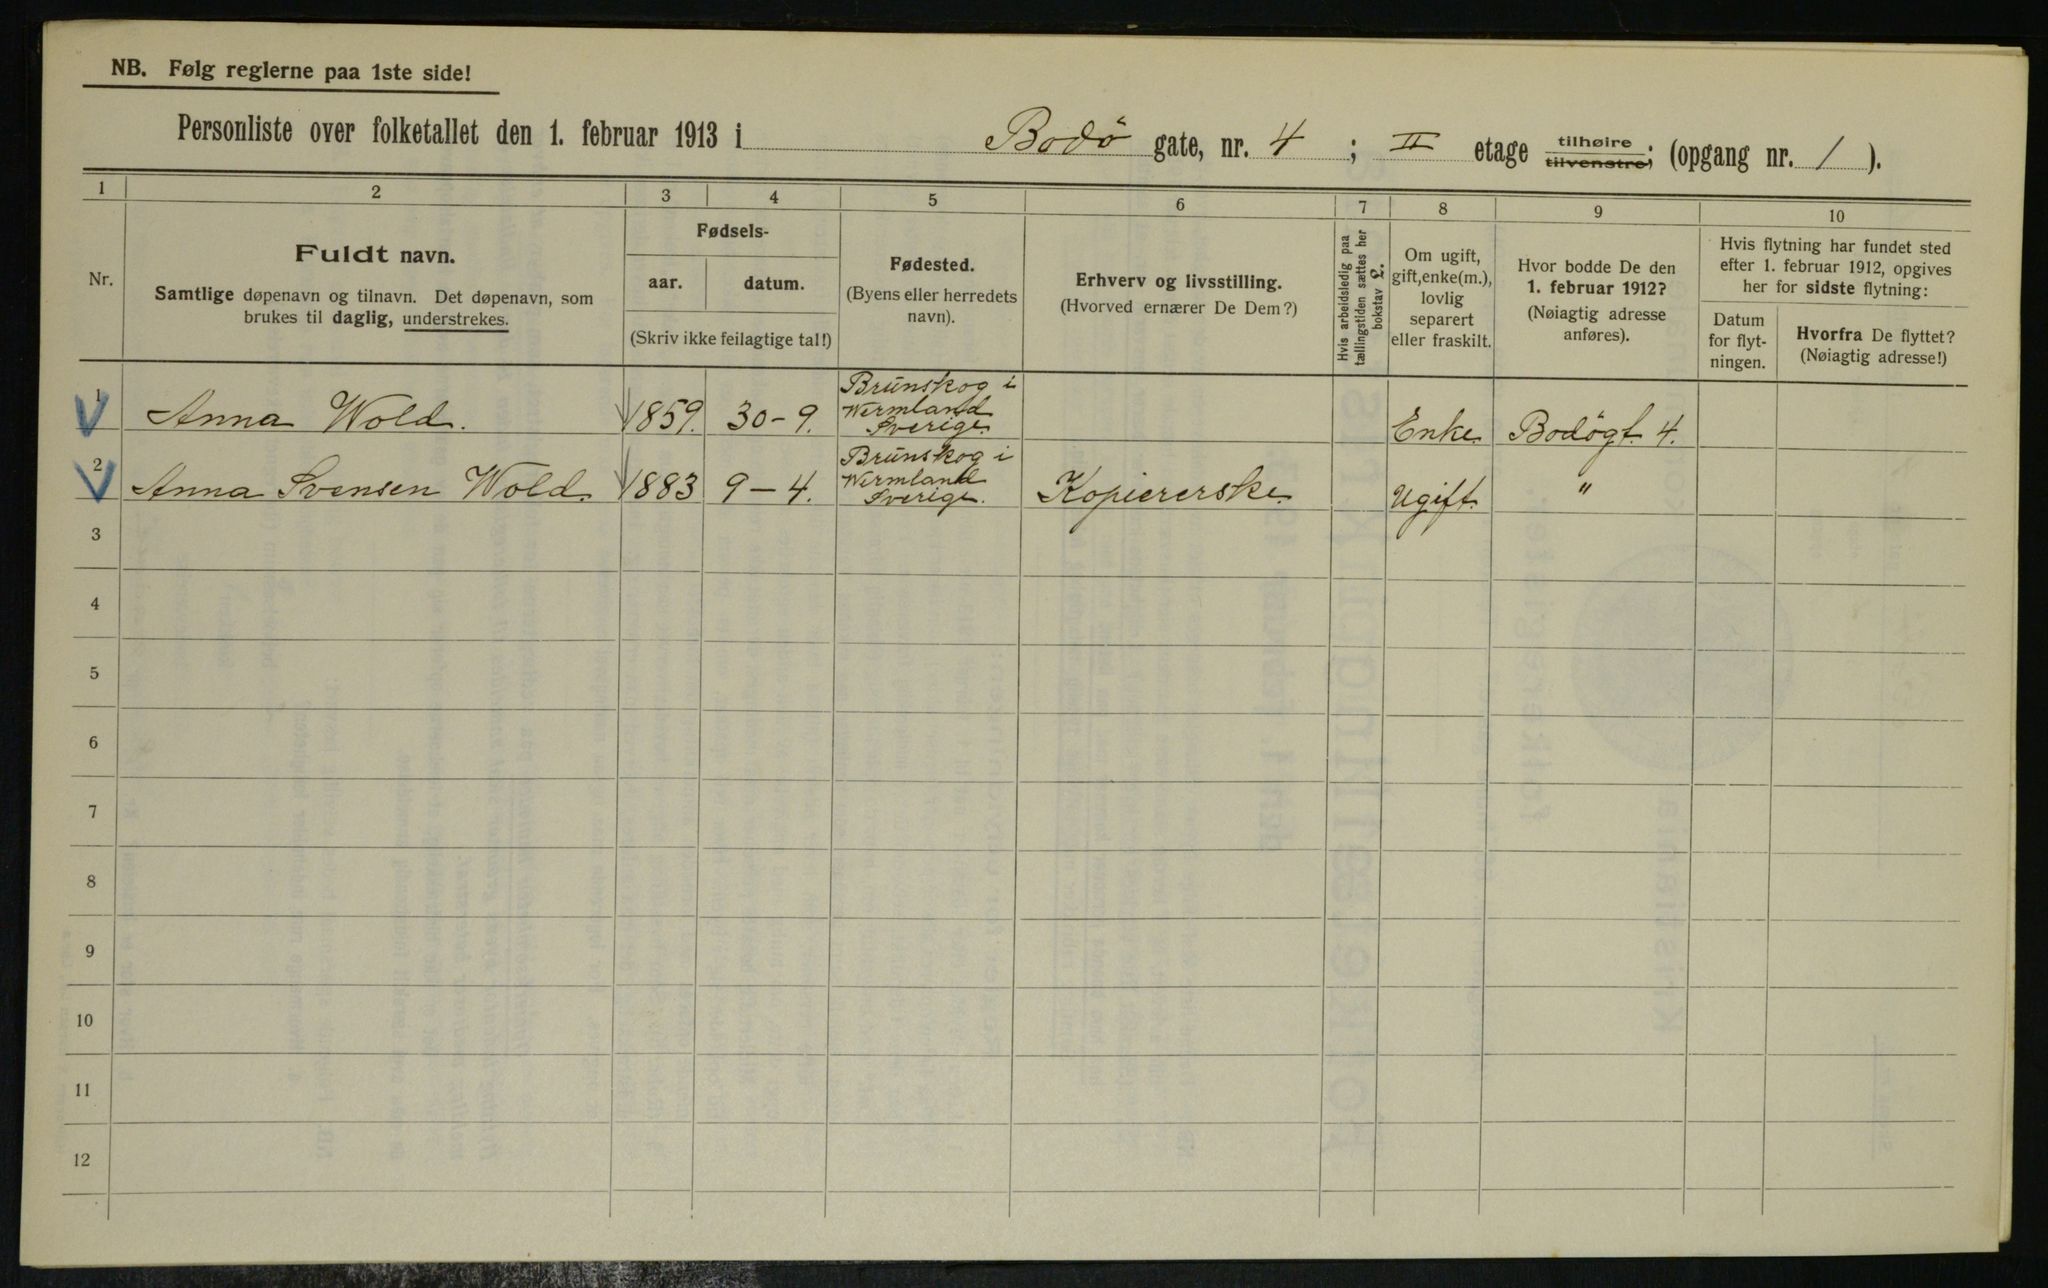 NB. Følg reglerne paa 1ste side!
Personliste over folketallet den 1. februar 1913 i Bodö gate, nr. 4 ; II etage tilhøire tilvenstre; (opgang nr. 1 ).
1 2 3 4 5 6 7 8 9 10
Nr.
Fuldt navn.
Samtlige døpenavn og tilnavn. Det døpenavn, som
brukes til daglig, understrekes.
Fødsels-
aar. datum.
(Skriv ikke feilagtige tal!)
Fødested.
(Byens eller herredets
navn).
Erhverv og livsstilling.
(Hvorved ernærer De Dem?)
Hvis arbeidsledig paa
tællingstiden sættes her
bokstav L.
Om ugift,
gift, enke(m.),
lovlig
separert
eller fraskilt.
Hvor bodde De den
1. februar 1912?
(Nøiagtig adresse
anføres).
Hvis flytning har fundet sted
efter 1. februar 1912, opgives
her for sidste flytning:
Datum
for flyt-
ningen.
Hvorfra De flyttet?
(Nøiagtig adresse!)
1 Anna Wold. 1859. 30-9. Brunskog i
Wermland
Sverige. Enke. Bodögt. 4.
2 Anna Svensen Wold. 1883 9-4. Brunskog i
Wermland
Sverige. Kopiererske. Ugift. "
3
4
5
6
7
8
9
10
11
12